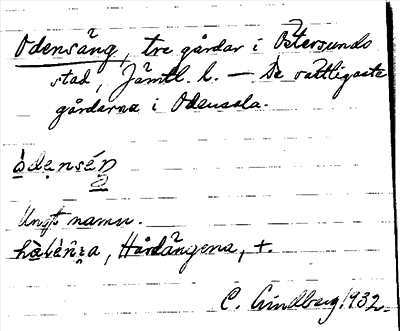 Odensäng, tre gårdar i Östersunds
stad, Jämtl. l. — De östligaste
gårdarna i Odensala.
Ungt namn.
Hårdängena, +.
C. Lindberg 1932.